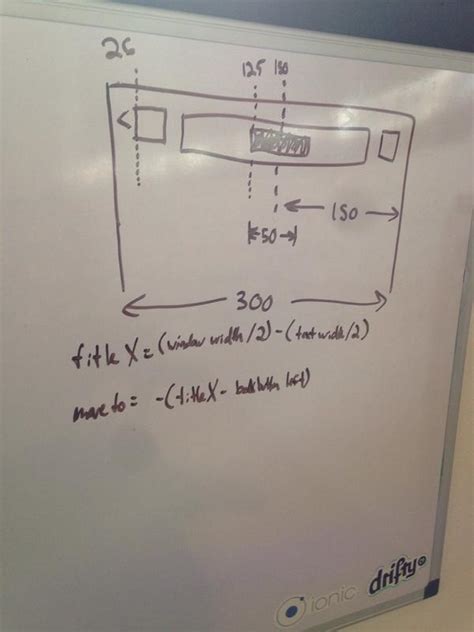 25
125 150
<
150
50
300
title X = (window width/2) - (text width/2)
move to = -(title X - back button left)
ionic drifty